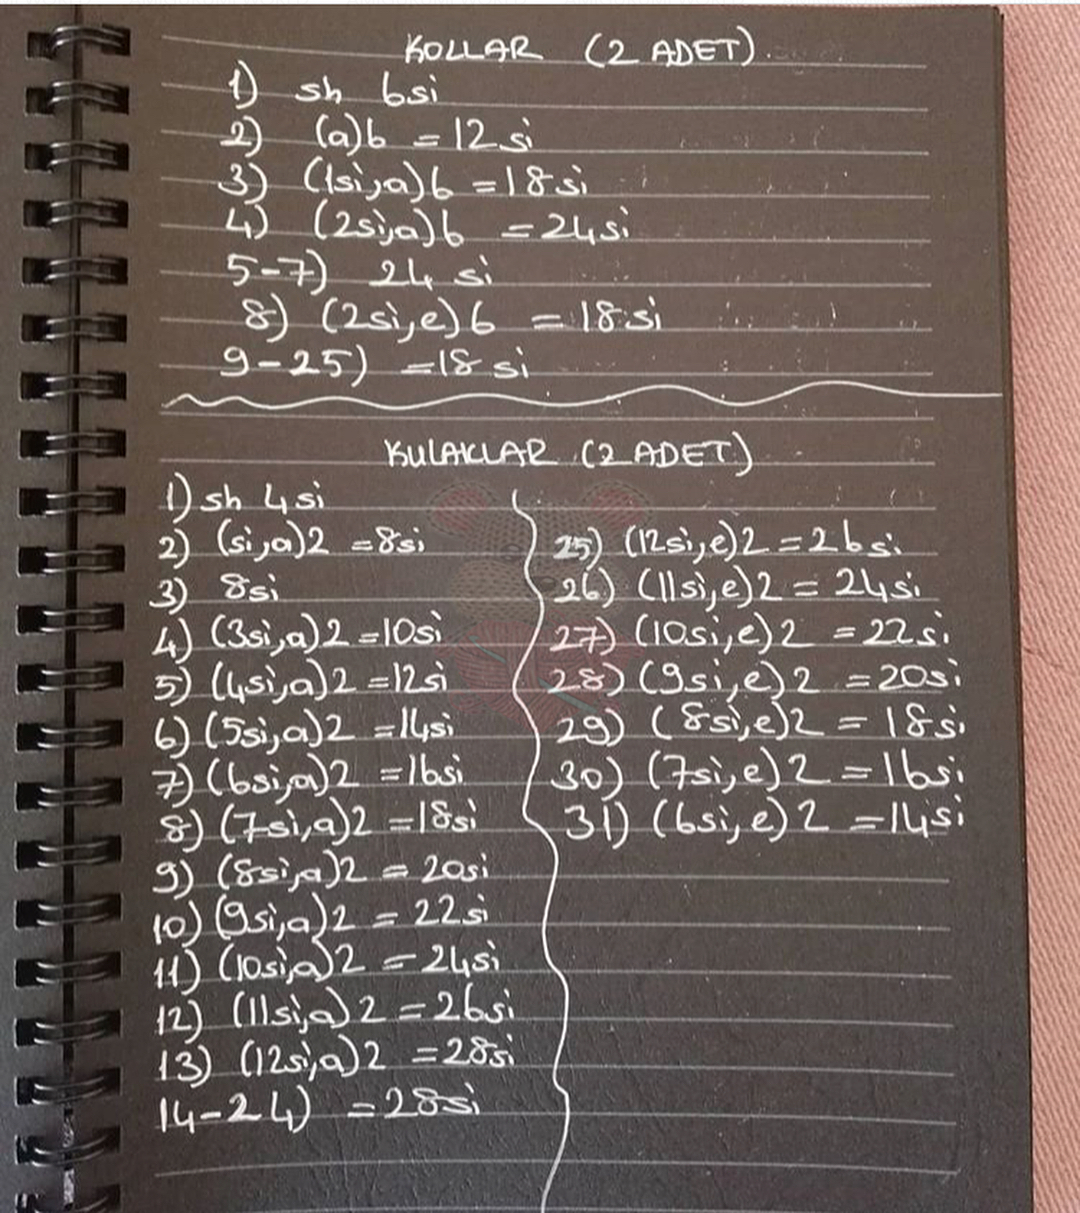 KOLLAR (2 ADET)
1) sh 6si
2) (a)6 =12si
3) (1si,a)6 =18si
4) (2si,a)6 =24si
5-7) 24 si
8) (2si,e)6 =18si
9-25) =18 si
KULAKLAR (2 ADET)
1) sh 4si
2) (si,a)2 =8si
3) 8si
4) (3si,a)2 =10si
5) (4si,a)2 =12si
6) (5si,a)2 =14si
7) (6si,a)2 =16si
8) (7si,a)2 =18si
9) (8si,a)2 = 20si
10) (9si,a)2 = 22si
11) (10si,a)2 = 24si
12) (11si,a)2 = 26si
13) (12si,a)2 =28si
14-24) =28si
25) (12si,e)2 =26si
26) (11si,e)2 = 24si
27) (10si,e)2 =22si
28) (9si,e)2 =20si
29) (8si,e)2 = 18si
30) (7si,e)2 =16si
31) (6si,e)2 =14si